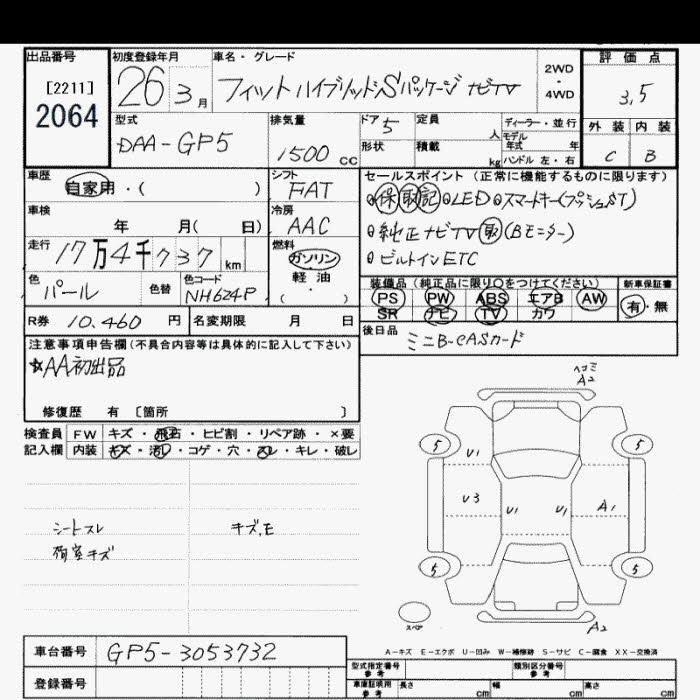 出品番号 初度登録年月 車名・グレード 評価点
[2211]
2064
26 3月 フィットハイブリッドSパッケージ ナビTV 2WD・4WD 3.5
型式 排気量 ドア 5 定員 人 ディーラー・並行 外装 内装
DAA-GP5 1500 cc 形状 積載 kg モデル年式 年 ハンドル 左・右 C B
車歴 シフト セールスポイント (正常に機能するものに限ります)
自家用・( ) FAT 保 取 記 LED スマートキー(プッシュST)
車検 年 月( 日) 冷房 AAC 純正ナビTV 取 (Bモニター)
走行 17万4千737km 燃料 ガソリン 軽油 ( ・ ) ビルトインETC
色 パール 色替 色コード NH624P 装備品 (純正品に限り○をつけてください) 新車保証書
PS PW ABS エアB AW 有・無
SR ナビ TV カワ
R券 10.460 円 名変期限 月 日 後日品 ミニB-CASカード
注意事項申告欄(不具合内容等は具体的に記入して下さい)
☆AA初出品
修復歴 有 〔箇所 〕
検査員 FW キズ・飛石・ヒビ割・リペア跡・×要
記入欄 内装 キズ・汚レ・コゲ・穴・スレ・キレ・破レ
シートスレ キズ、モ
荷室キズ
ヘコミ
A2
5 5
U1
U3 U1 U1 A1
5 5
スペア A2
A-キズ E-エクボ U-凹み W-補修跡 S-サビ C-腐食 XX-交換済
車台番号 GP5-3053732
型式指定番号 参考 類別区分番号 参考
登録番号 車庫証明用 参考 長さ cm 幅 cm 高さ cm